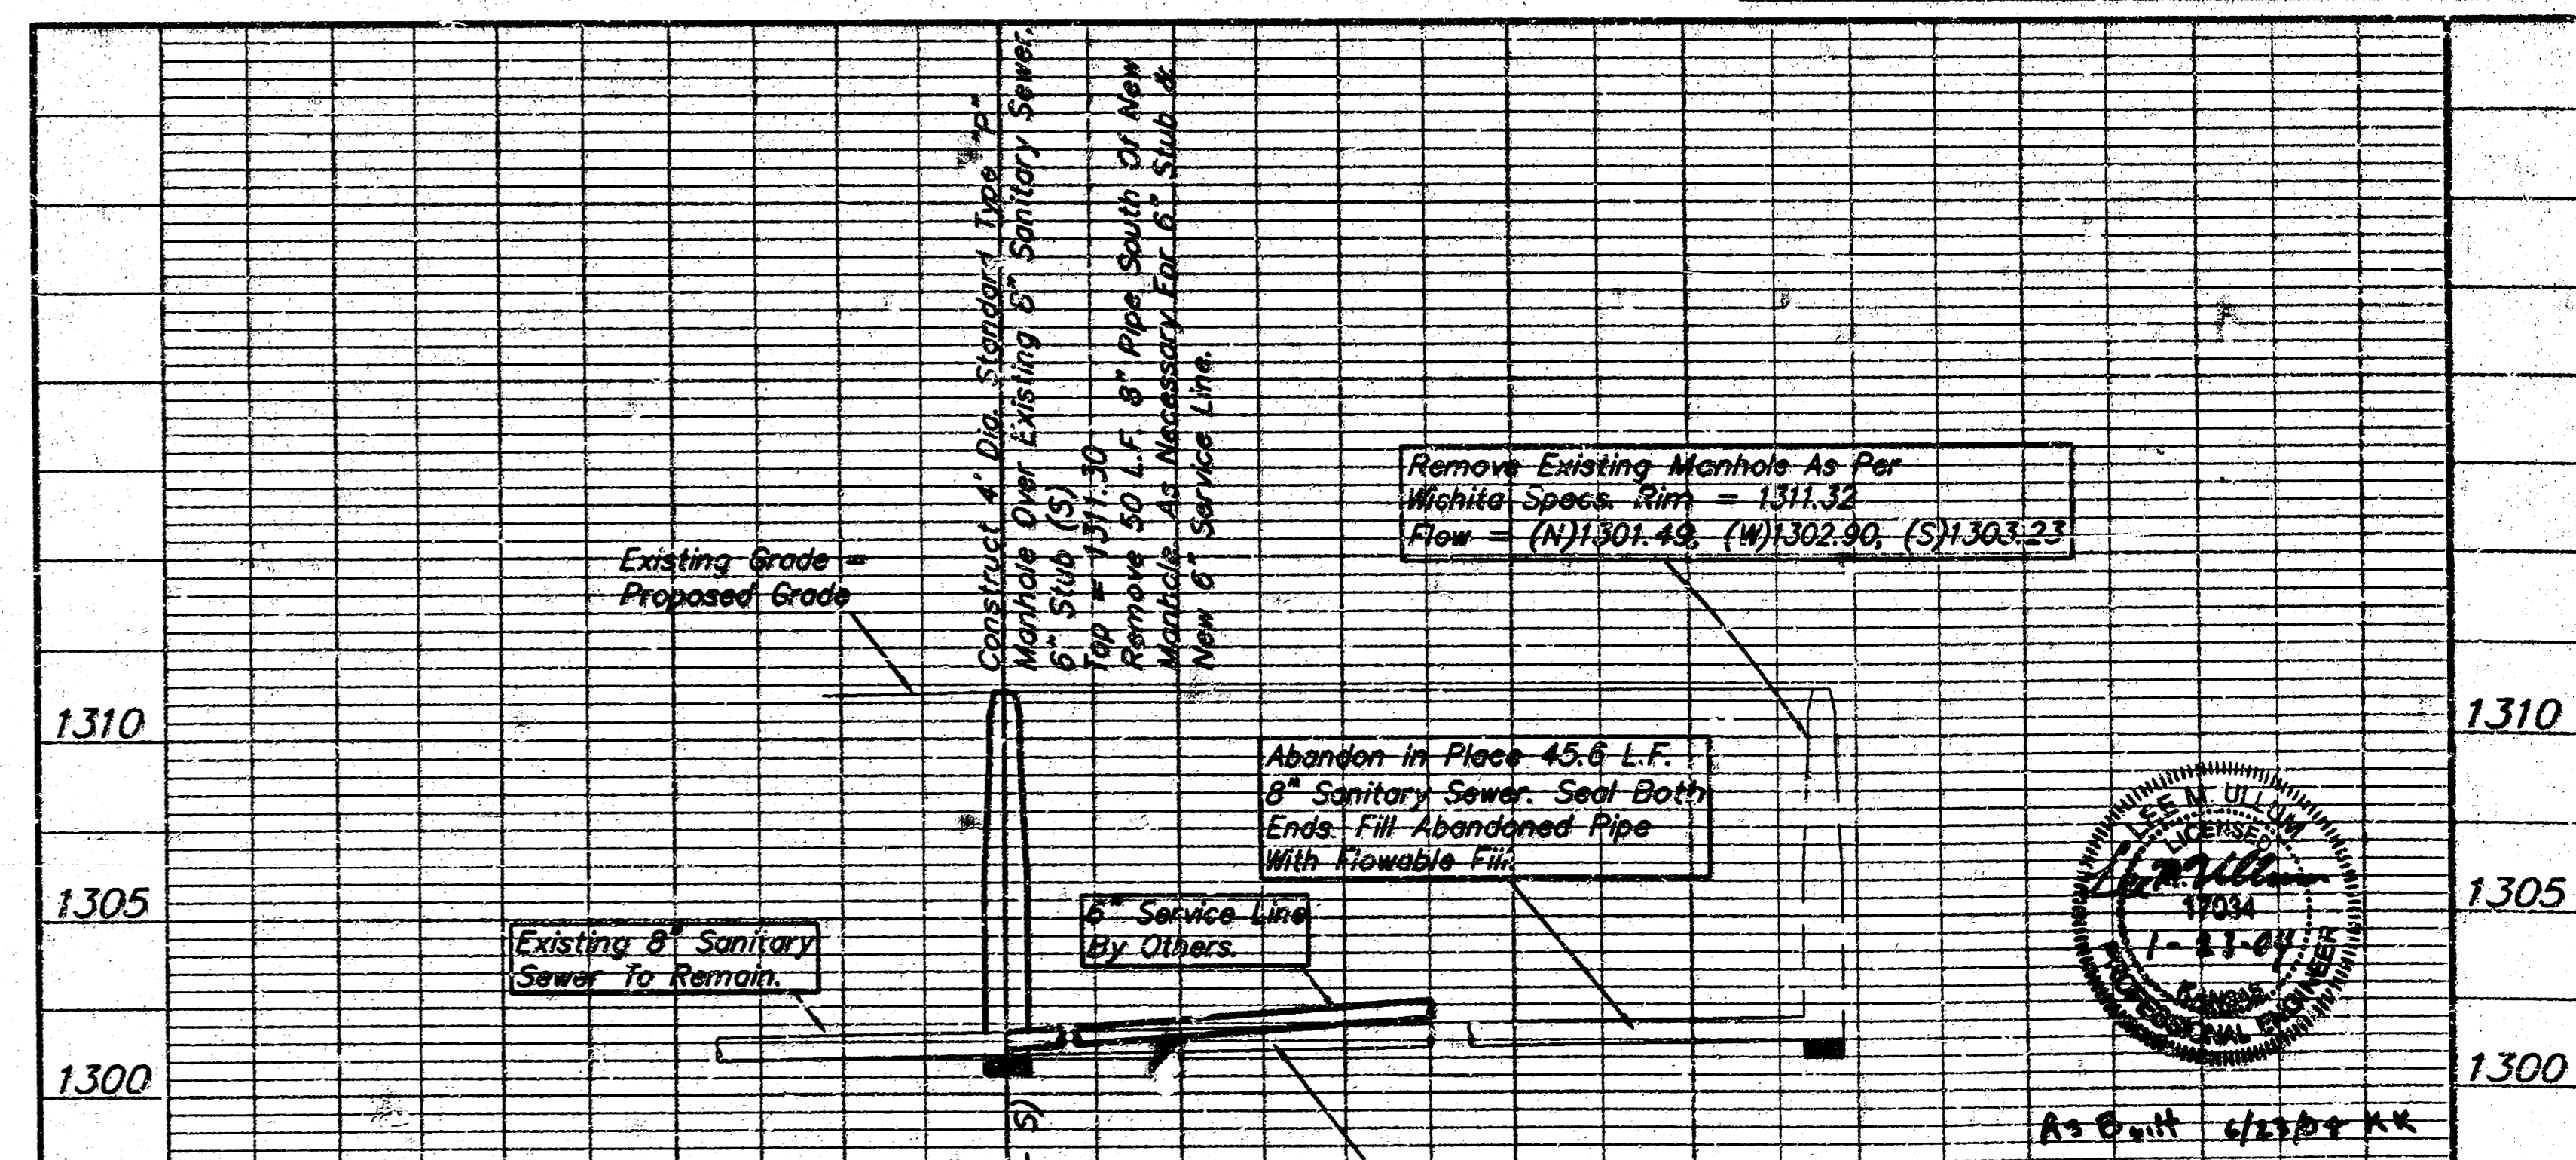 Construct 4' Dia. Standard Type "P"
Manhole Over Existing 8" Sanitary Sewer.
6" Stub (S)
Top = 1311.30
Remove 50 L.F. 8" Pipe South Of New
Manhole As Necessary For 6" Stub &
New 6" Service Line.
Remove Existing Manhole As Per
Wichita Specs. Rim = 1311.32
Flow = (N)1301.49, (W)1302.90, (S)1303.23
Existing Grade =
Proposed Grade
1310
1310
Abandon in Place 45.6 L.F.
8" Sanitary Sewer. Seal Both
Ends. Fill Abandoned Pipe
With Flowable Fill.
1305
1305
6" Service Line
By Others.
Existing 8" Sanitary
Sewer To Remain.
LEE M. ULLUM
LICENSED
17034
1-23-04
KANSAS
PROFESSIONAL ENGINEER
1300
1300
S)
As Built 6/23/04 KK